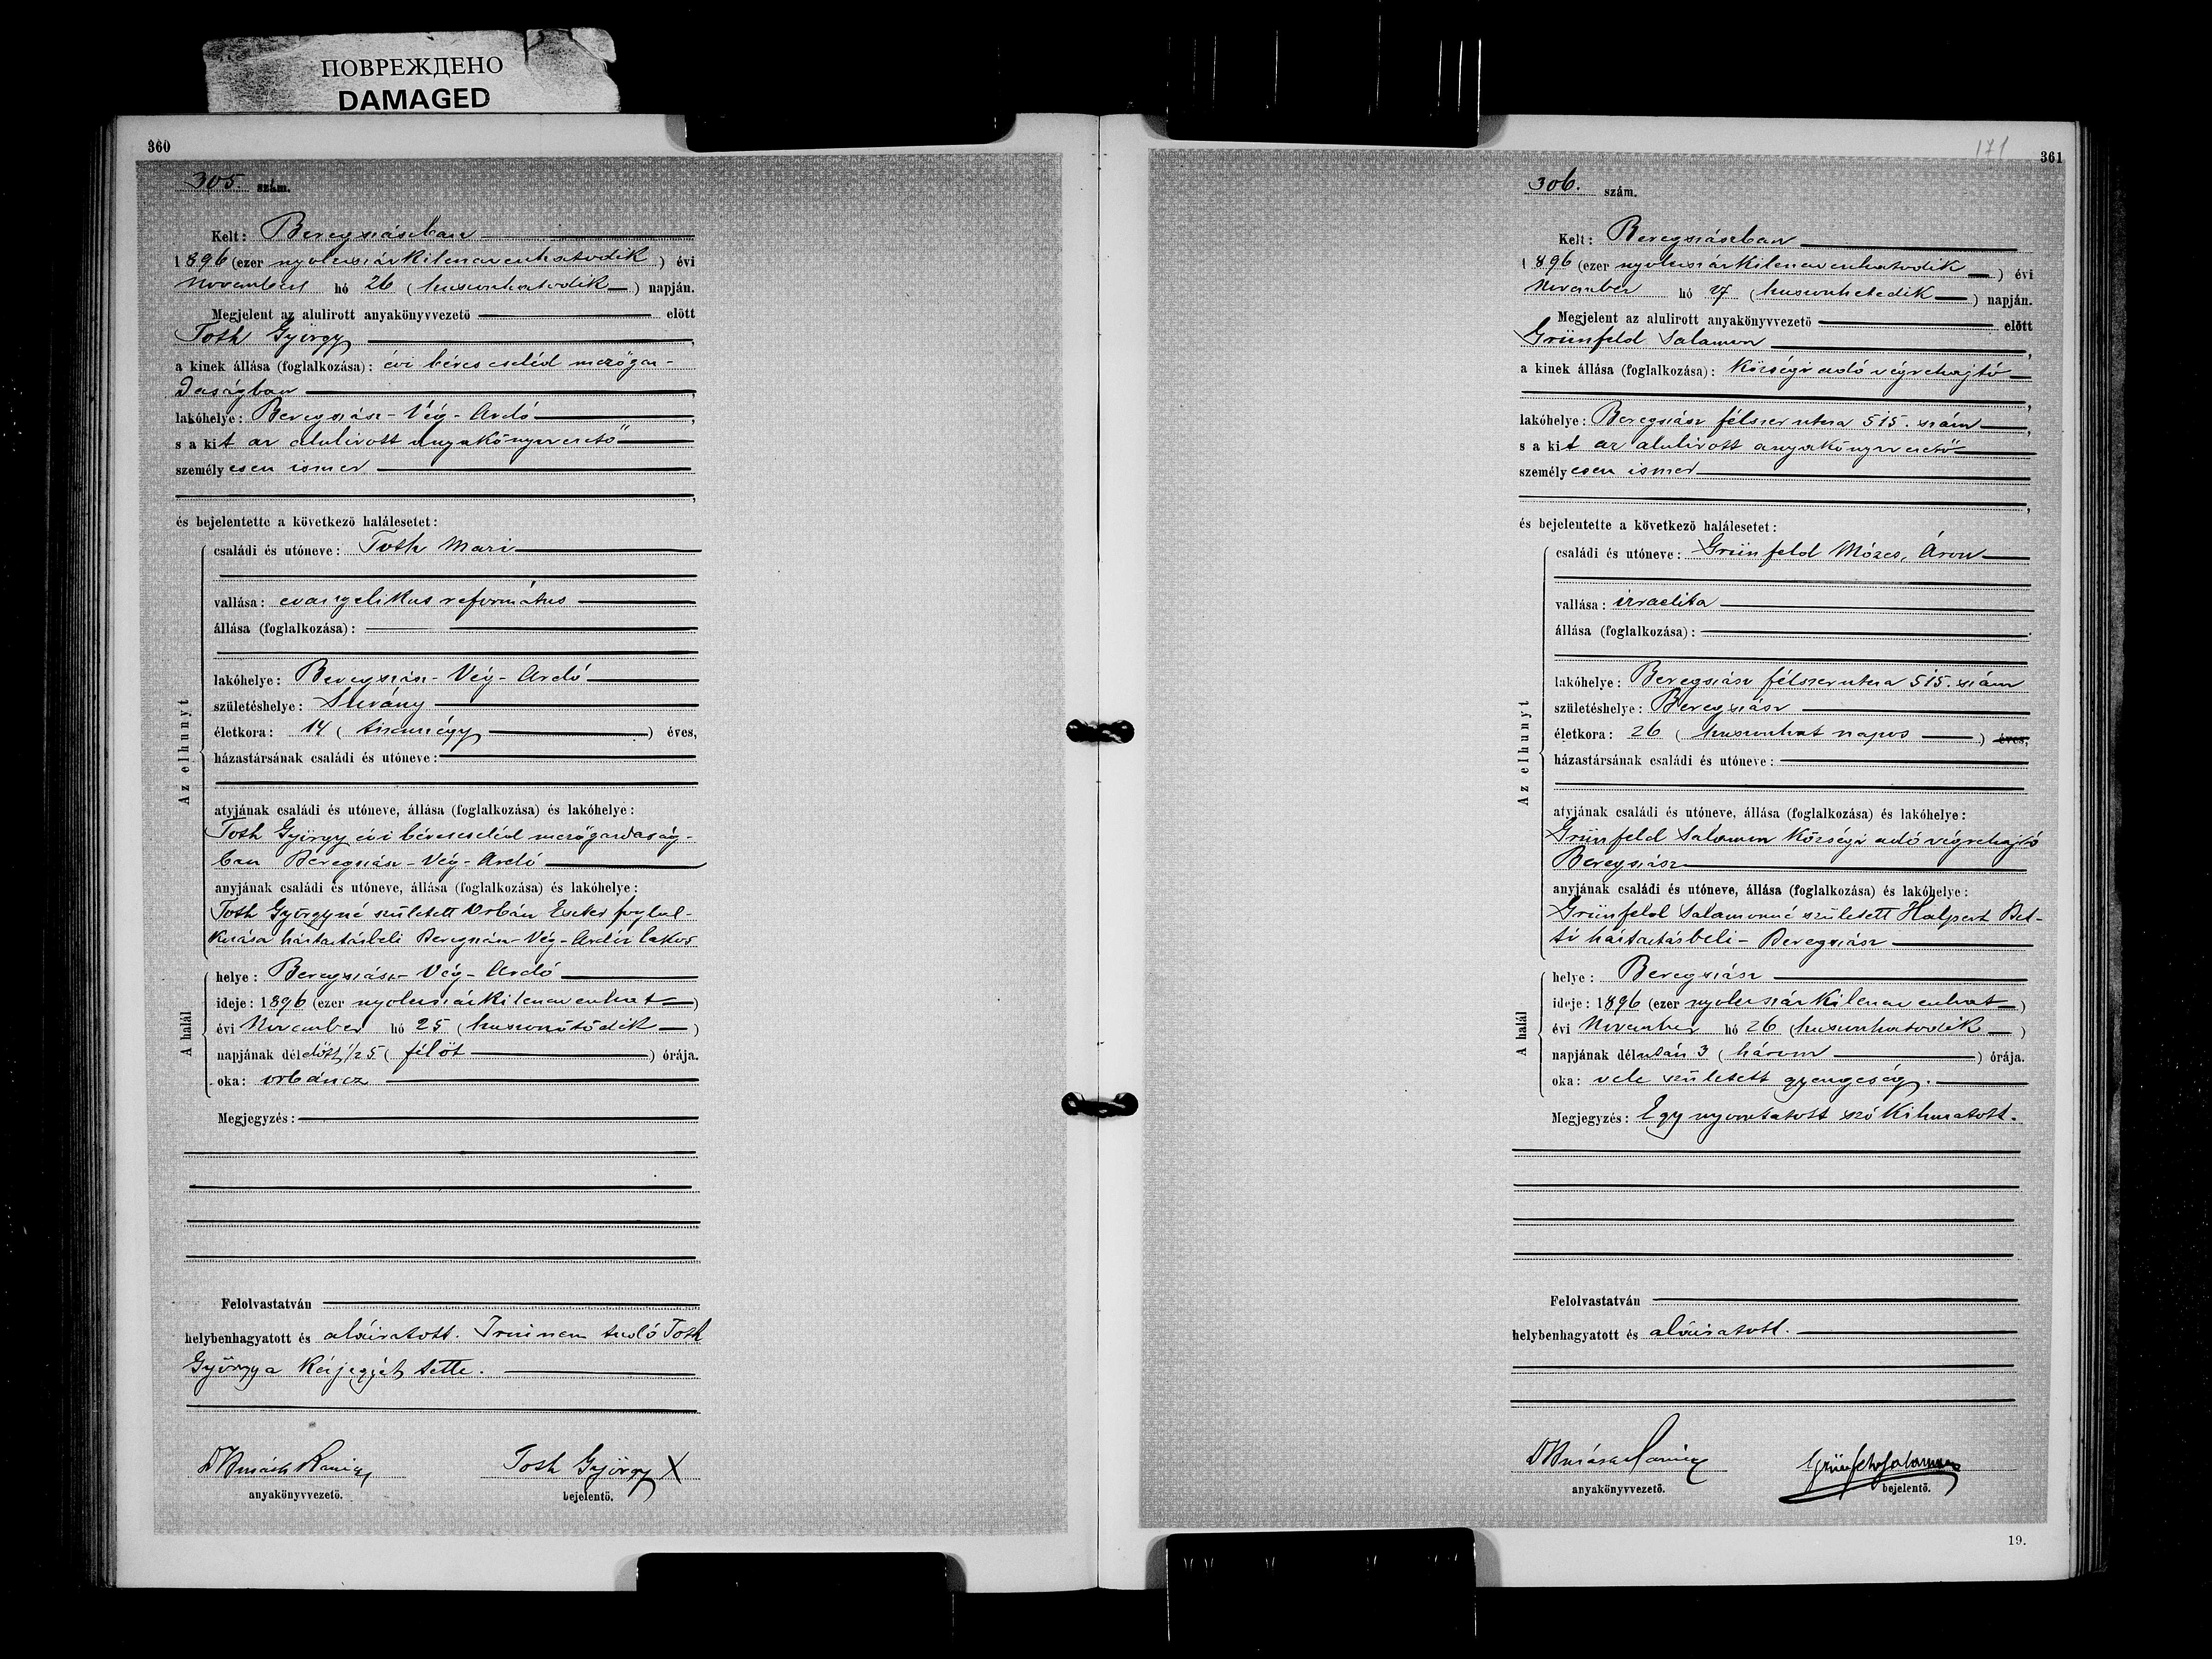 ПОВРЕЖДЕНО
DAMAGED
360
305 szám.
Kelt: Beregszászban
1896 (ezer nyolcszázkilencvenhatodik) évi
November hó 26 (huszonhatodik) napján.
Megjelent az alulirott anyakönyvvezető előtt
Toth György,
a kinek állása (foglalkozása): évi béres cseléd mezőgaz-
daságban,
lakóhelye: Beregszász-Vég-Ardó,
s a kit az alulirott anyakönyvvezető
személyesen ismer
,
és bejelentette a következő halálesetet:
Az elhunyt
családi és utóneve: Toth Mari
vallása: evangelikus református
állása (foglalkozása):
lakóhelye: Beregszász-Vég-Ardó
születéshelye:
életkora: 14 (tizennégy) éves,
házastársának családi és utóneve:
atyjának családi és utóneve, állása (foglalkozása) és lakóhelye:
Toth György évi bérescseléd mezőgazdaság-
ban Beregszász-Vég-Ardó
anyjának családi és utóneve, állása (foglalkozása) és lakóhelye:
Toth Györgyné született Orbán Eszter foglal-
kozása háztartásbeli Beregszász-Vég-Ardói lakos
A halál
helye: Beregszász-Vég-Ardó
ideje: 1896 (ezer nyolcszázkilencvenhat)
évi November hó 25 (huszonötödik)
napjának délelőtt 1/2 5 (félöt) órája.
oka: orbáncz
Megjegyzés:
Felolvastatván
helybenhagyatott és aláiratott. Irni nem tudó Toth
György a kézjegyét tette.
anyakönyvvezető.
Toth György X
bejelentő.
171
361
306. szám.
Kelt: Beregszászban
1896 (ezer nyolcszázkilencvenhatodik) évi
November hó 27 (huszonhetedik) napján.
Megjelent az alulirott anyakönyvvezető előtt
Grünfeld Salamon,
a kinek állása (foglalkozása): községi adó végrehajtó
,
lakóhelye: Beregszász félszer utcza 515. szám,
s a kit az alulirott anyakönyvvezető
személyesen ismer
,
és bejelentette a következő halálesetet:
Az elhunyt
családi és utóneve: Grünfeld Mózes, Áron
vallása: izraelita
állása (foglalkozása):
lakóhelye: Beregszász félszer utcza 515. szám
születéshelye: Beregszász
életkora: 26 (huszonhat napos) éves,
házastársának családi és utóneve:
atyjának családi és utóneve, állása (foglalkozása) és lakóhelye:
Grünfeld Salamon községi adó végrehajtó
Beregszász
anyjának családi és utóneve, állása (foglalkozása) és lakóhelye:
Grünfeld Salamonné született Halpert Bet-
ti háztartásbeli - Beregszász
A halál
helye: Beregszász
ideje: 1896 (ezer nyolcszázkilencvenhat)
évi November hó 26 (huszonhatodik)
napjának délután 3 (három) órája.
oka: vele született gyengeség.
Megjegyzés: Egy nyomtatott szó kihuzatott.
Felolvastatván
helybenhagyatott és aláiratott.
anyakönyvvezető.
Grünfeld Salamon
bejelentő.
19.